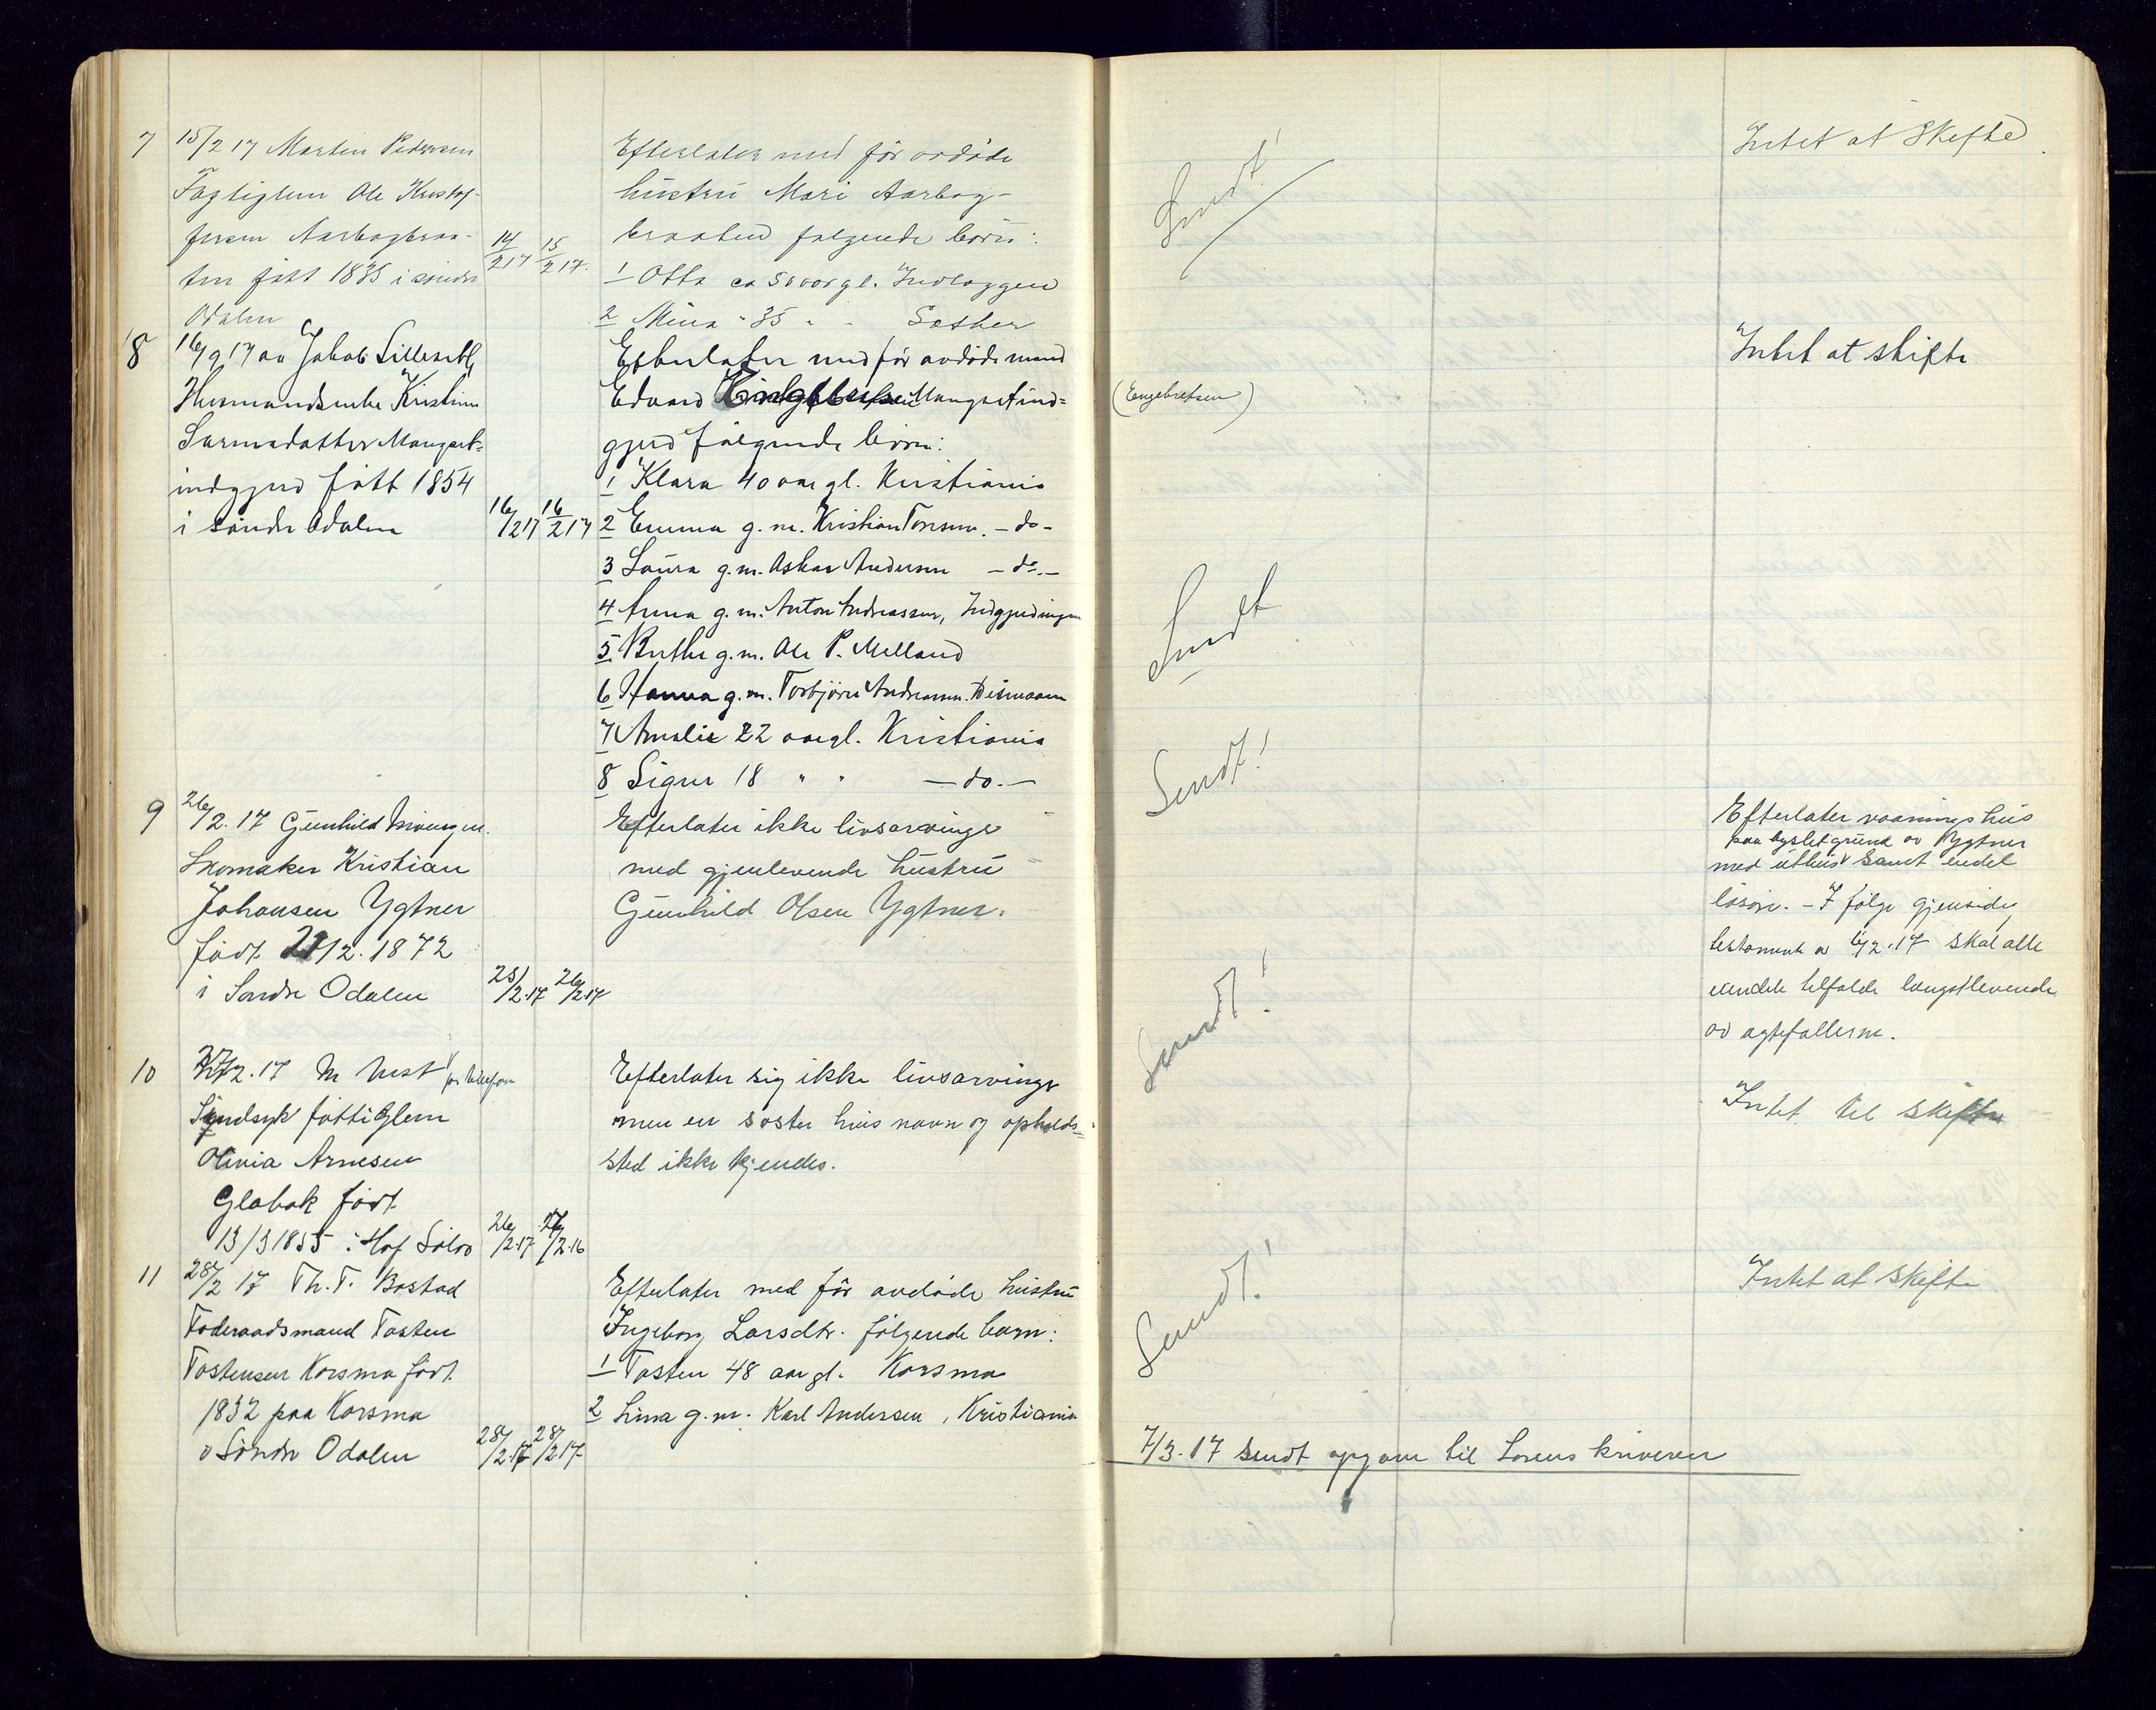 7
15/2 17 Martin Pedersen
Fattiglem Ole Kristof-
fersen Aarbogbraa-
ten født 1835 i søndre
Odalen
14/2 17
15/2 17.
Efterlater med før avdøde
hustru Mari Aarbog-
braaten følgende børn:
1 Otto ca 50 aar gl.
2 Mina " 35 " " Sæther
Sendt!
Intet at Skifte
8
16/2 17 av Jakob Lilleseth
Husmandsenke Kristine
Larsdatter Mangset-
indgjerd født 1854
i søndre Odalen
16/2 17
16/2 17
Efterlater med før avdøde mand
Edvard Mangsetind=
gjerd følgende børn:
(Engebretsen)
1 Klara 40 aar gl. Kristiania
2 Emma g. m. Kristian Toresen. - do -
3 Laura g. m. Oskar Andersen - do. -
4 Anna g. m. Anton Andreassen, Indgjerdingen
5. Berthe g. m. Ole P. Melland
6 Hanna g. m. Torbjørn Andreassen. Disenaaen
7 Amalie 22 aar gl. Kristiania
8 Signe 18 " " - do. -
Sendt
Sendt!
Intet at skifte
9
26/2. 17 Gunhild
Skomaker Kristian
Johansen Ygtner
født 21/12. 1872
i Søndre Odalen
25/2. 17
26/2. 17
Efterlater ikke livsarvinge
med gjenlevende hustru
Gunhild Olsen Ygtner.
Sendt!
Efterlater vaaningshus
paa bygslet grund av Ygtner
med uthus samt endel
løsøre. - I følge gjensidig
testament av 6/2. 17 skal alle
eiendele tilfalde længstlevende
av ægtefællerne.
10
27/2. 17 M Vest pr telefon
Sindsyk fattiglem
Olivia Arnesen
Glabak født
13/3 1855 i Hof Solør
26/2. 17
27/2. 16
Efterlater sig ikke livsarvinge
men en søster hvis navn og opholds=
sted ikke kjendes.
Intet til skifte
11
28/2 17 Th. T. Bostad
Føderaadsmand Tosten
Tostensen Korsmo født
1832 paa Korsmo
i Søndre Odalen
28/2. 17
28/2 17
Efterlater med før avdøde hustru
Ingeborg Larsdtr. følgende barn:
1 Tosten 48 aar gl. Korsmo
2 Lina g. m. Karl Andersen, Kristiania
Sendt!
Intet at skifte
7/3. 17 sendt opgave til Sorenskriveren